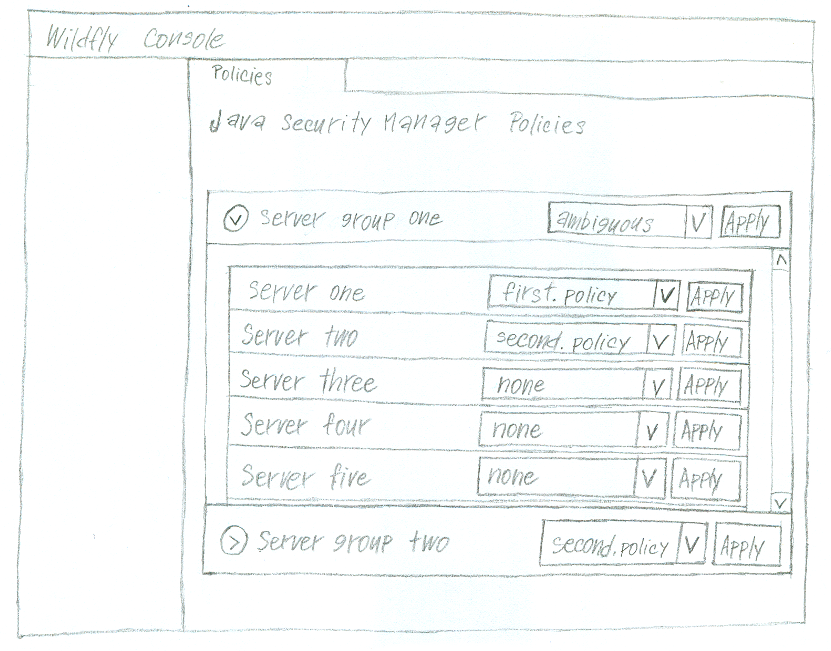 Wildfly Console
Policies
Java Security Manager Policies
Server group one ambiguous V Apply
Server one first.policy V Apply
Server two second.policy V Apply
Server three none V Apply
Server four none V Apply
Server five none V Apply
Server group two second.policy V Apply